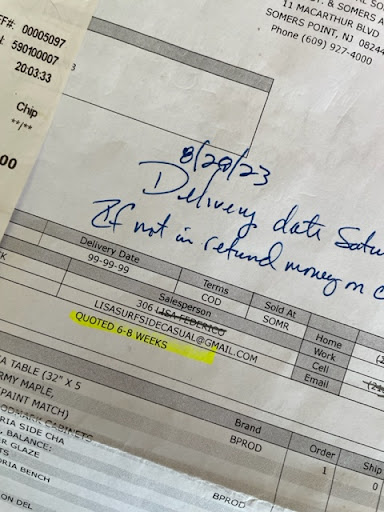 ST. & SOMERS A
11 MACARTHUR BLVD
SOMERS POINT, NJ 0824
Phone (609) 927-4000
EFF#: 00005097
#: 590100007
20:03:33
Chip
**/**
00
3
8/28/23
Delivery date Satu
If not in refund money on c
Delivery Date
99-99-99
Terms
COD
Sold At
SOMR
Salesperson
306 LISA FEDERICO
LISASURFSIDECASUAL@GMAIL.COM
QUOTED 6-8 WEEKS
Home
Work
Cell
Email
Brand
Order
Ship
A TABLE (32" X 5
RMY MAPLE,
PAINT MATCH)
BPROD
1
0
RIA SIDE CHA
, BALANCE:
ER GLAZE
TS
ORIA BENCH
ON DEL
BPROD